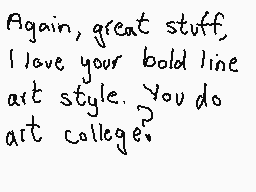 Again, great stuff,
I love your bold line
art style. You do
art college?